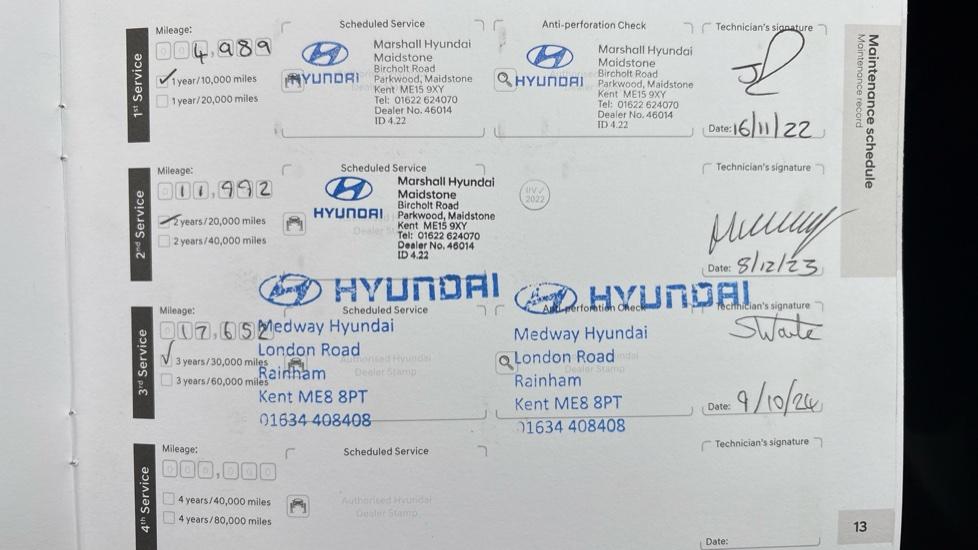 Maintenance schedule
Maintenance record
1st Service
Mileage:
004,989
1 year/10,000 miles
1 year/20,000 miles
Scheduled Service
HYUNDAI
Marshall Hyundai
Maidstone
Bircholt Road
Parkwood, Maidstone
Kent ME15 9XY
Tel: 01622 624070
Dealer No. 46014
ID 4.22
Anti-perforation Check
HYUNDAI
Marshall Hyundai
Maidstone
Bircholt Road
Parkwood, Maidstone
Kent ME15 9XY
Tel: 01622 624070
Dealer No. 46014
ID 4.22
Technician's signature
Date: 16/11/22
2nd Service
Mileage:
011,992
2 years/20,000 miles
2 years/40,000 miles
Scheduled Service
HYUNDAI
Marshall Hyundai
Maidstone
Bircholt Road
Parkwood, Maidstone
Kent ME15 9XY
Tel: 01622 624070
Dealer No. 46014
ID 4.22
2022
Technician's signature
Date: 8/12/23
3rd Service
Mileage:
017,652
3 years/30,000 miles
3 years/60,000 miles
Scheduled Service
HYUNDAI
Medway Hyundai
London Road
Rainham
Kent ME8 8PT
01634 408408
Authorised Hyundai
Dealer Stamp
Anti-perforation Check
HYUNDAI
Medway Hyundai
London Road
Rainham
Kent ME8 8PT
01634 408408
Dealer Stamp
Technician's signature
SWaite
Date: 9/10/24
4th Service
Mileage:
000,000
4 years/40,000 miles
4 years/80,000 miles
Scheduled Service
Authorised Hyundai
Dealer Stamp
Technician's signature
Date:
13